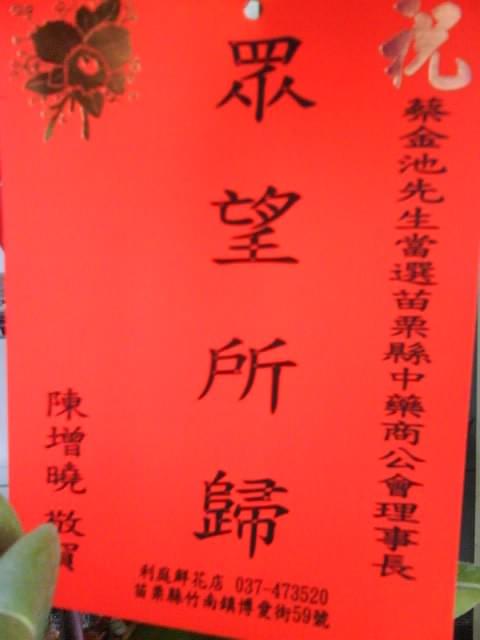 祝
蔡金池先生當選苗栗縣中藥商公會理事長
眾望所歸
陳增曉 敬賀
利庭鮮花店 037-473520
苗栗縣竹南鎮博愛街59號